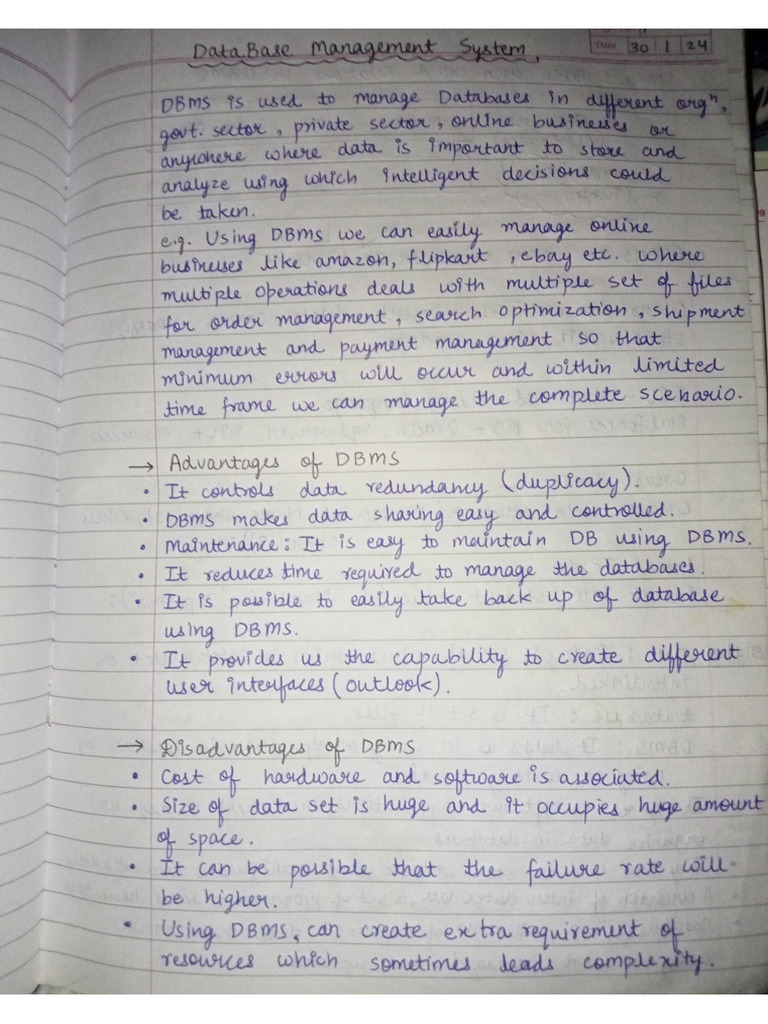 DataBase Management System
Date 30 1 24
DBMS is used to manage Databases in different orgⁿ,
govt. sector, private sector, online businesses or
anywhere where data is important to store and
analyze using which intelligent decisions could
be taken.
e.g. Using DBMS we can easily manage online
businesses like amazon, flipkart, ebay etc. where
multiple operations deals with multiple set of files
for order management, search optimization, shipment
management and payment management so that
minimum errors will occur and within limited
time frame we can manage the complete scenario.
→ Advantages of DBMS
• It controls data redundancy (duplicacy).
• DBMS makes data sharing easy and controlled.
• Maintenance: It is easy to maintain DB using DBMS.
• It reduces time required to manage the databases.
• It is possible to easily take back up of database
using DBMS.
• It provides us the capability to create different
user interfaces (outlook).
→ Disadvantages of DBMS
• Cost of hardware and software is associated.
• Size of data set is huge and it occupies huge amount
of space.
• It can be possible that the failure rate will
be higher.
• Using DBMS, can create extra requirement of
resources which sometimes leads complexity.